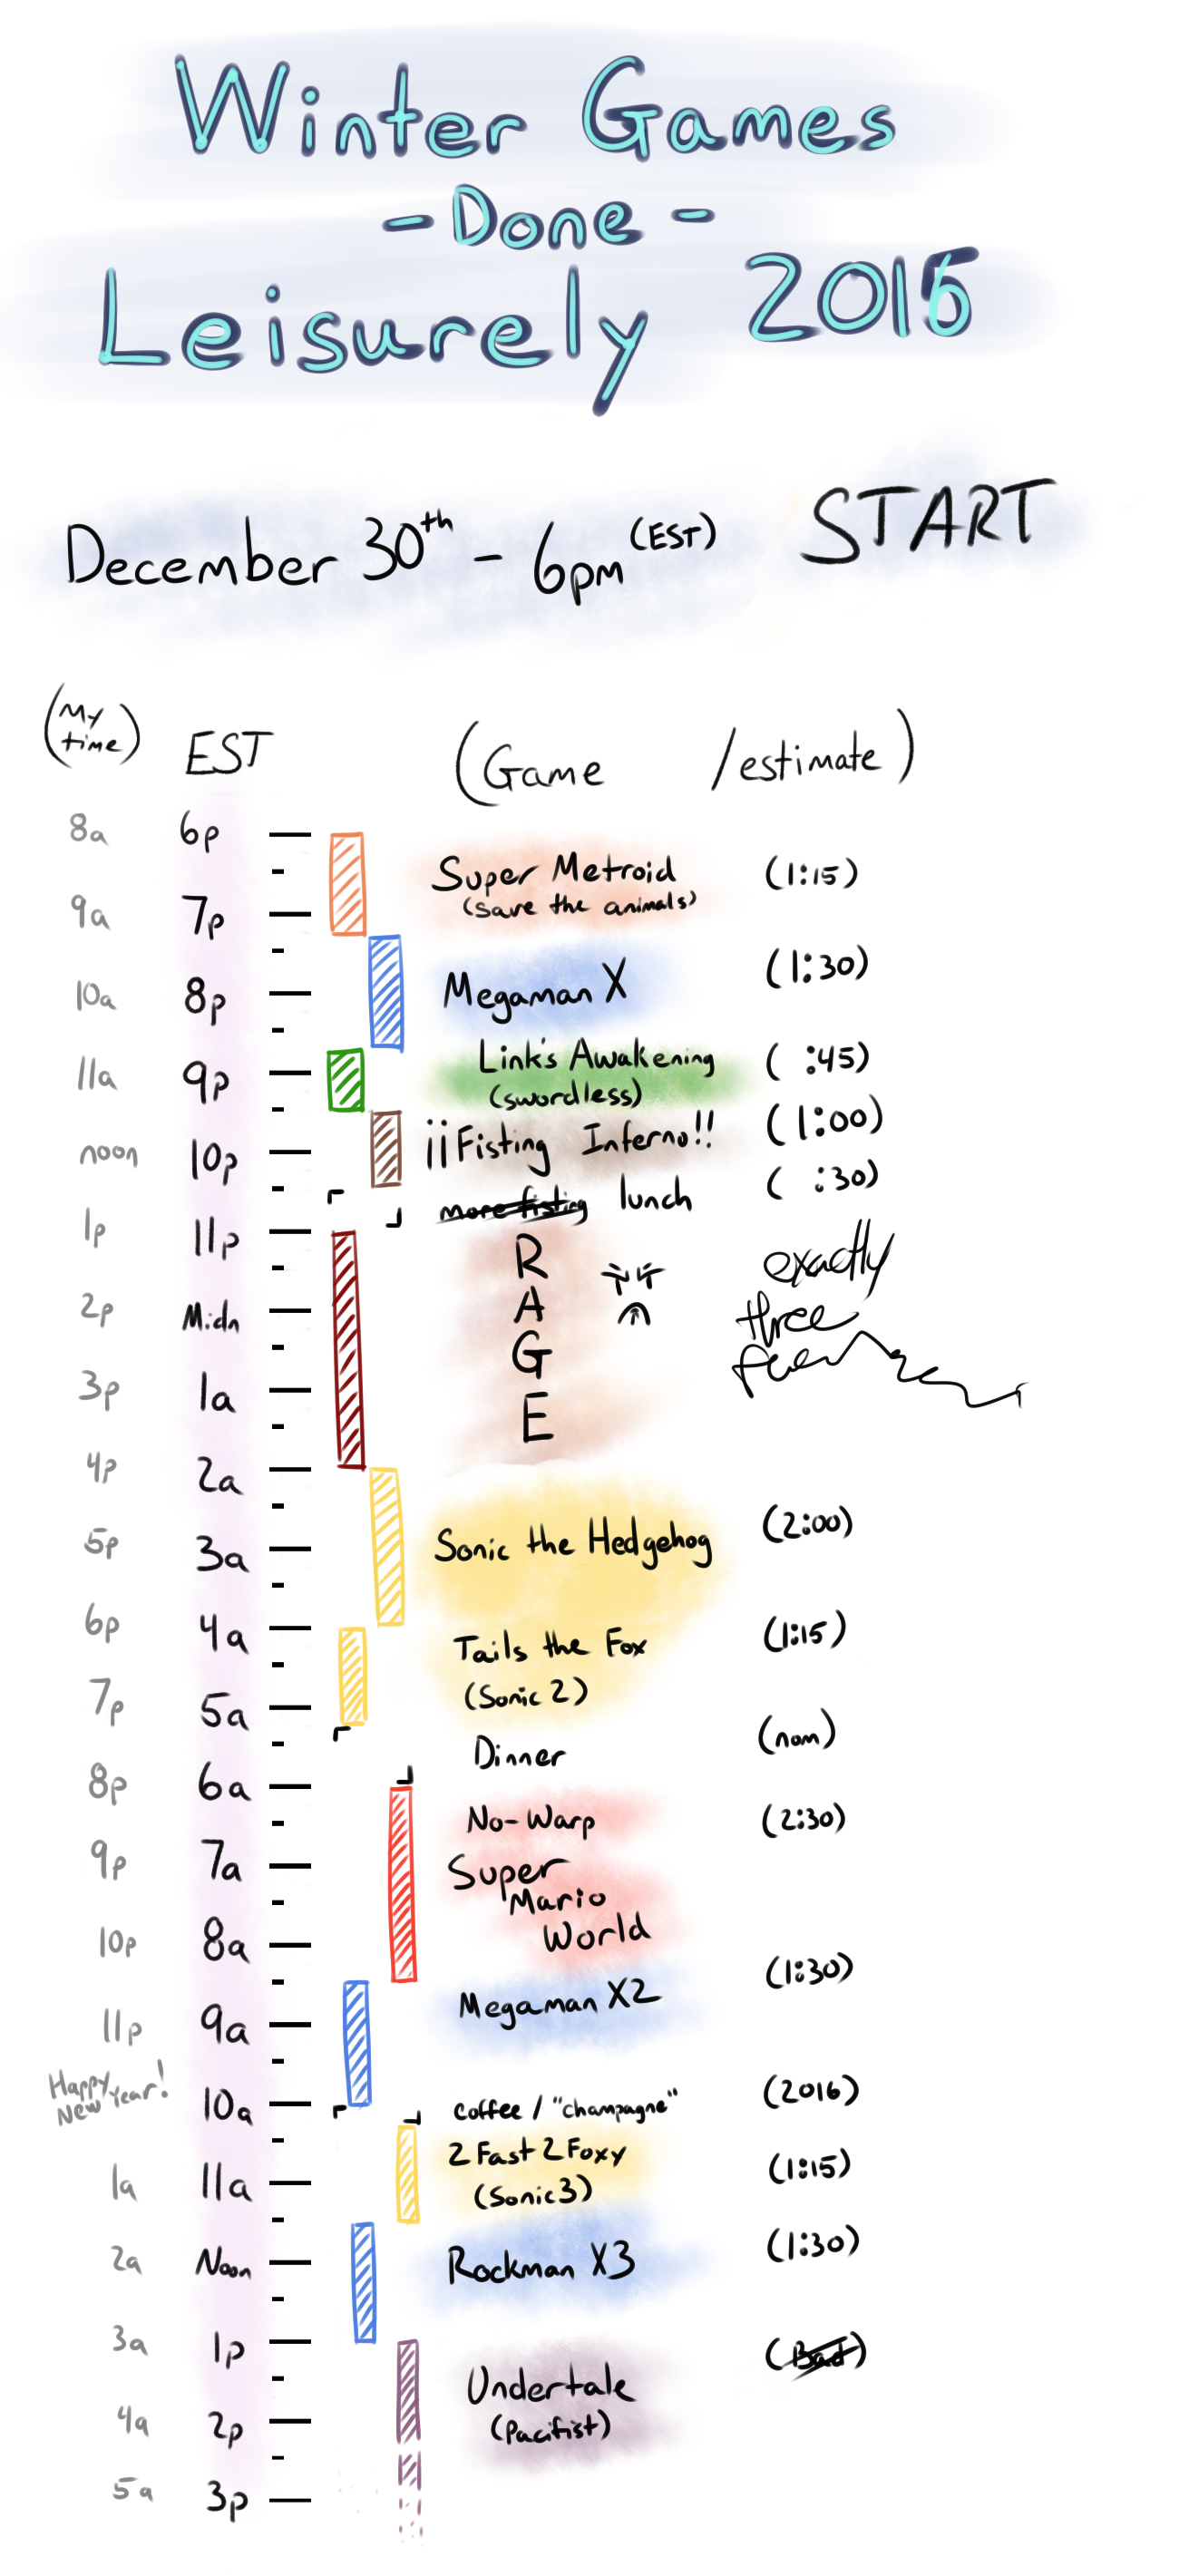 Winter Games
- Done -
Leisurely 2016
December 30th - 6pm (EST) START
(My time) EST (Game /estimate)
8a 6p
Super Metroid (1:15)
(save the animals)
9a 7p
10a 8p Megaman X (1:30)
11a 9p Link's Awakening ( :45)
(swordless)
noon 10p ¡¡Fisting Inferno!! (1:00)
more fisting lunch ( :30)
1p 11p
R
A
G
E
exactly
three
2p Midn
3p 1a
4p 2a
5p 3a Sonic the Hedgehog (2:00)
6p 4a Tails the Fox (1:15)
(Sonic 2)
7p 5a
Dinner (nom)
8p 6a
No-Warp (2:30)
9p 7a Super
Mario
World
10p 8a
Megaman X2 (1:30)
11p 9a
Happy New Year! 10a coffee / "champagne" (2016)
2 Fast 2 Foxy (1:15)
1a 11a (Sonic 3)
2a Noon Rockman X3 (1:30)
3a 1p
Undertale (Bad)
4a 2p (Pacifist)
5a 3p